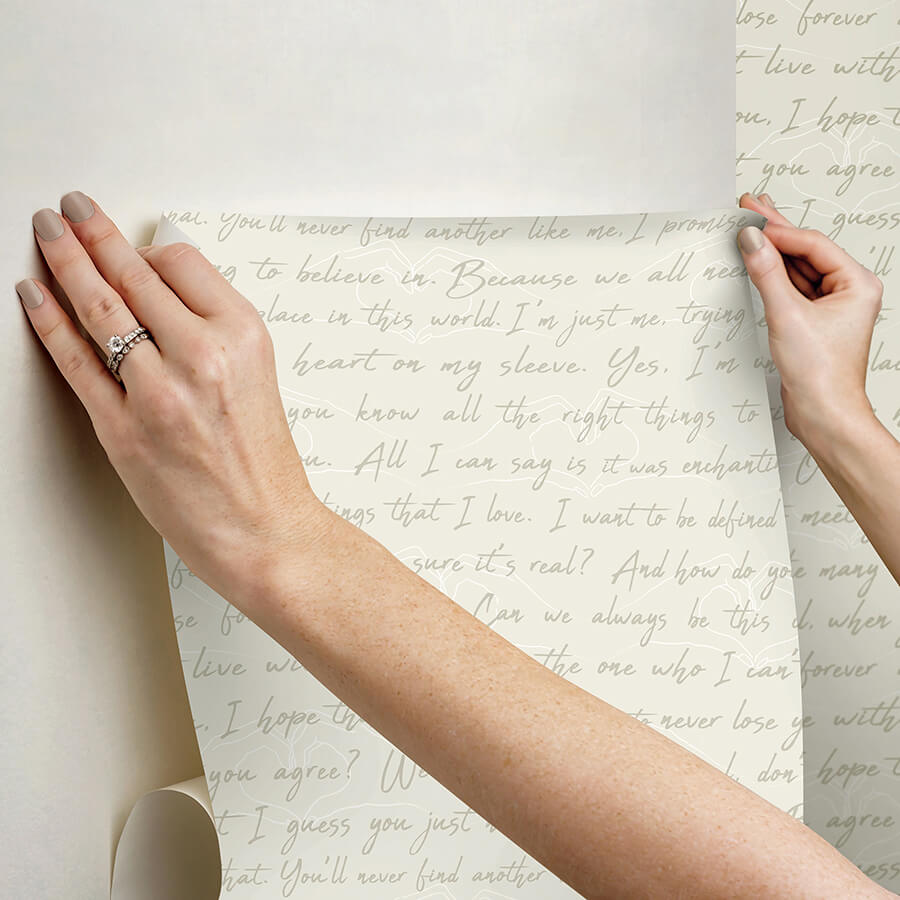 lose forever
live with
I hope
you agree
I guess
hat. You'll never find another like me, I promise
to believe in. Because we all need
place in this world. I'm just me, trying
heart on my sleeve. Yes, I'm
you know all the right things to
All I can say is it was enchanting
things that I love. I want to be defined meet
sure it's real? And how do many
Can we always be this when
live the one who I can't forever
I hope never lose with
you agree? don't hope
I guess you just agree
hat. You'll never find another